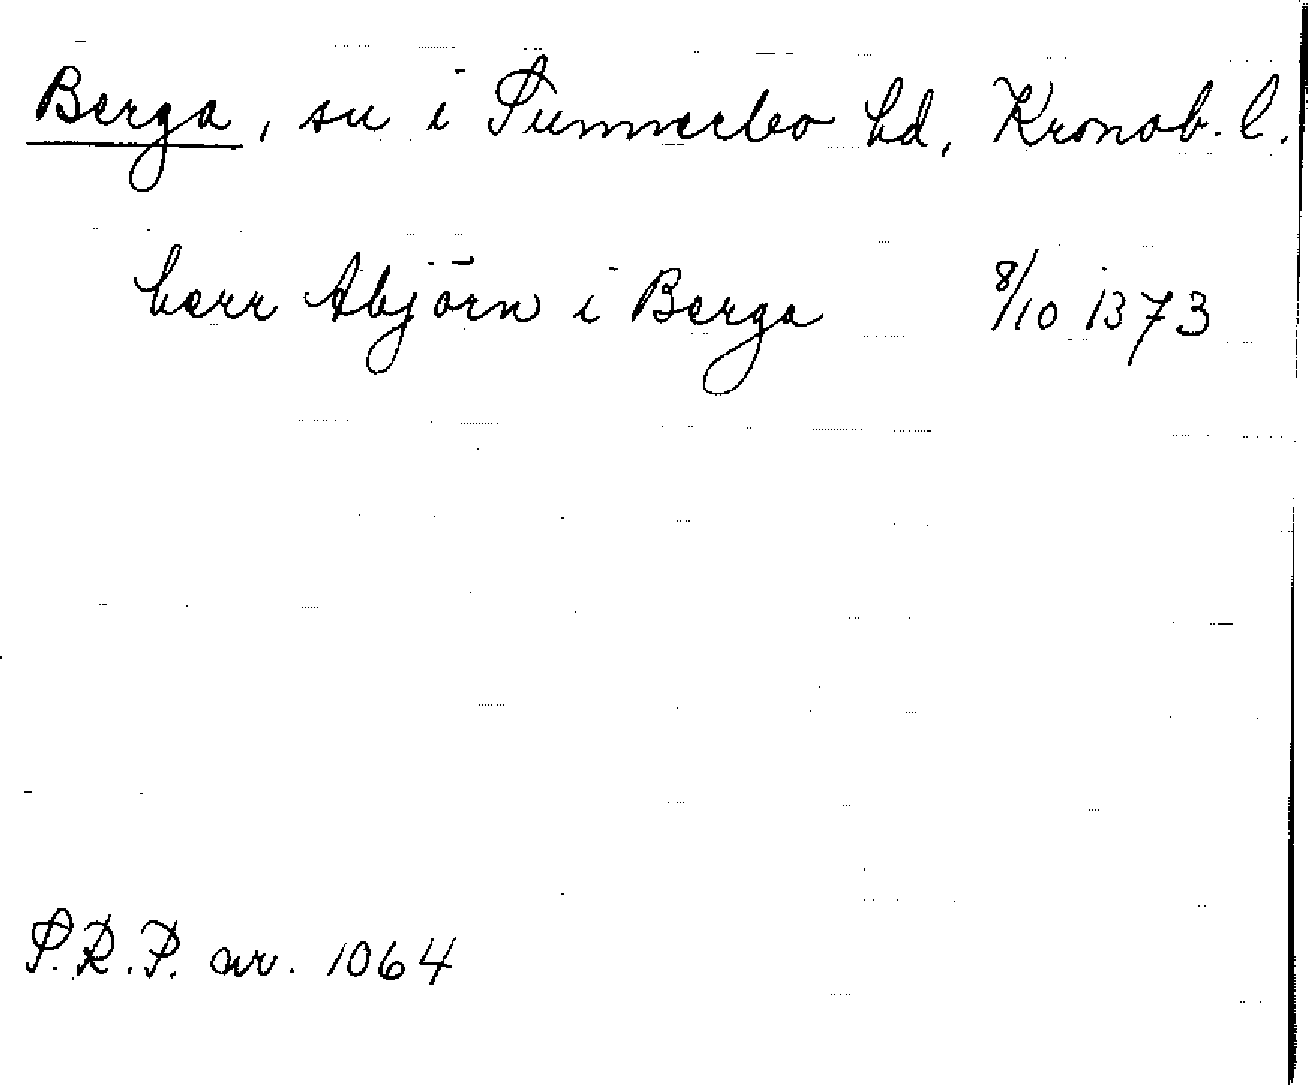 Berga, sn i Sunnerbo hd, Kronob. l.
herr Abjörn i Berga 8/10 1373
S.R.P. nr. 1064